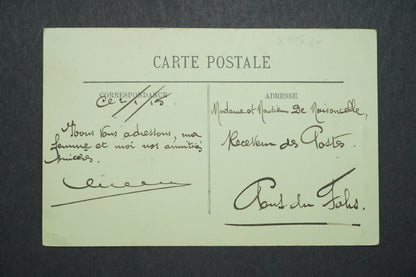 CARTE POSTALE
CORRESPONDANCE
ADRESSE
Nous vous adressons, ma
femme et moi nos amitiés
sincères.
Madame et Monsieur De Maisoncelle,
Receveur des Postes.
Pont du Fahs.